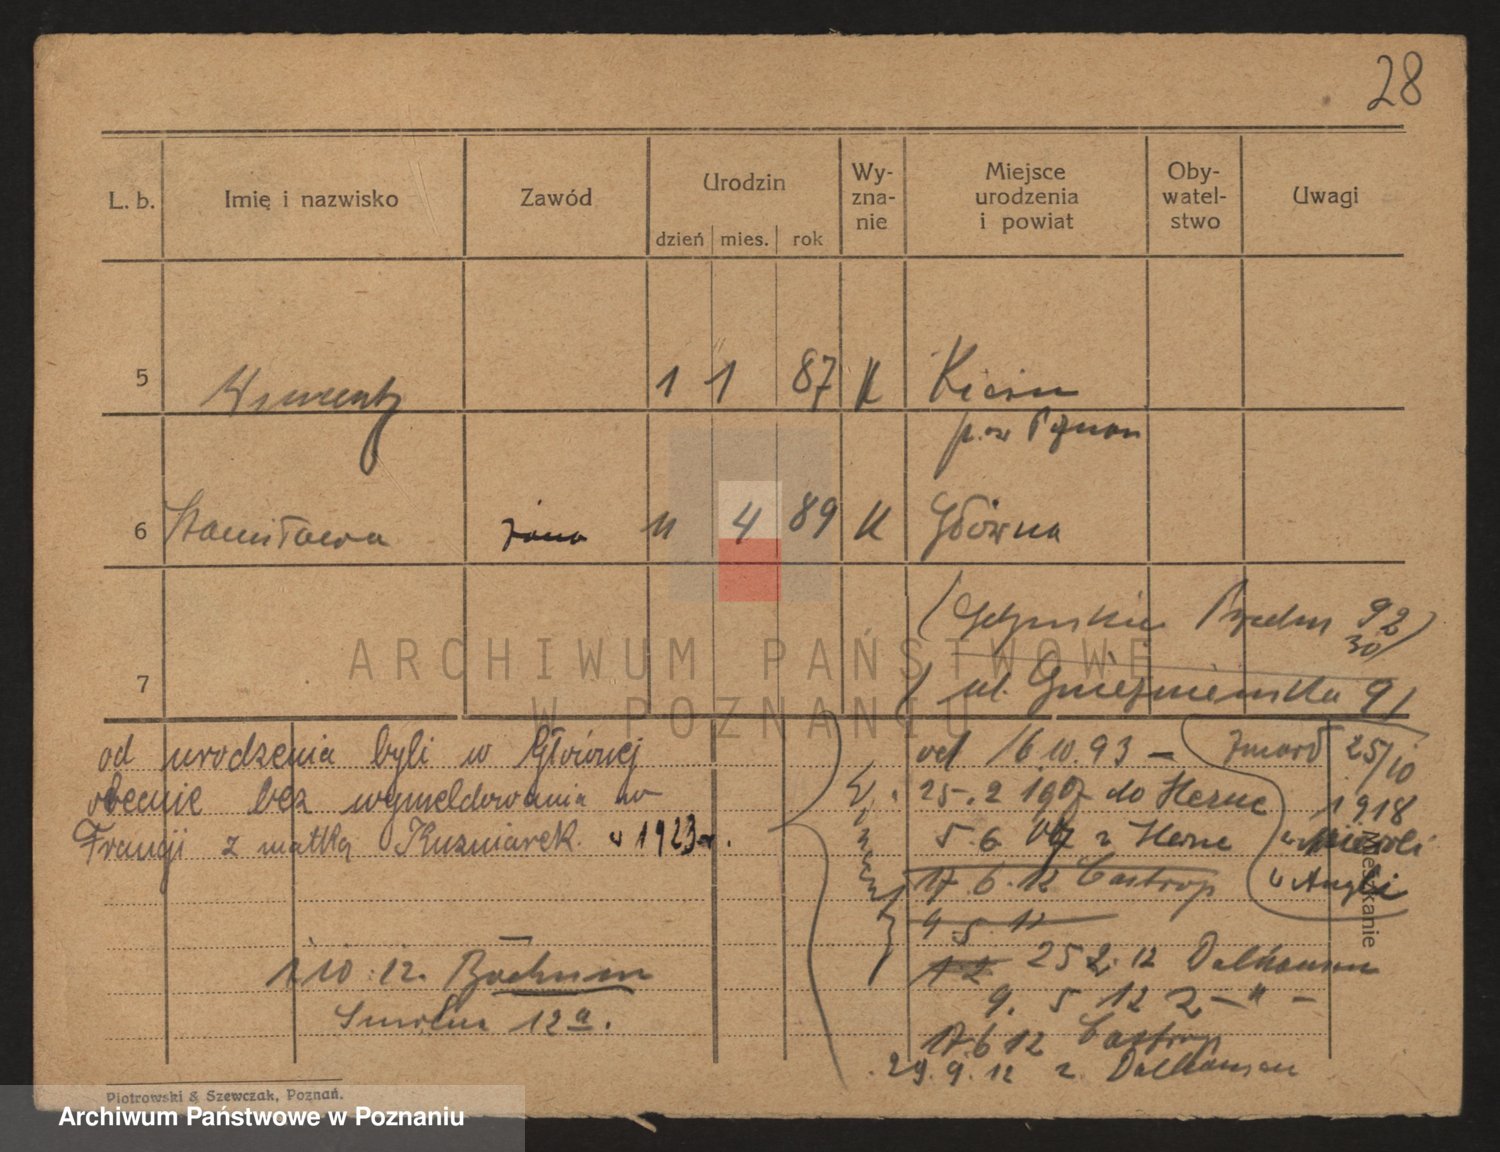 28
L. b. Imię i nazwisko Zawód Urodzin dzień mies. rok Wy-zna-nie Miejsce urodzenia i powiat Oby-watel-stwo Uwagi
5 Wincenty 1 1 87 K Kicin
pow Poznań
6 Stanisława żona 11 4 89 K Główna
92
30
7 ul. Gnieźnieńska 91
od urodzenia byli w Głównej
obecnie bez wymeldowania we
Francji z matką Kuzniarek. w 1923 r.
1 10.12. Bochum
12a.
od 16 10. 93 –
25. 2 1907 do Herne
5. 6. 07 z Herne
17. 6. 12 Castrop
9 5. 12
12 25 2. 12 Dalhausen
9. 5 12 z – " –
17.6 12 Castrop
29. 9. 12 z. Dalhausen
zmarł 25/10
1918
w Angli
Mieszkanie
Piotrowski & Szewczak, Poznań.
ARCHIWUM PAŃSTWOWE
W POZNANIU
Archiwum Państwowe w Poznaniu